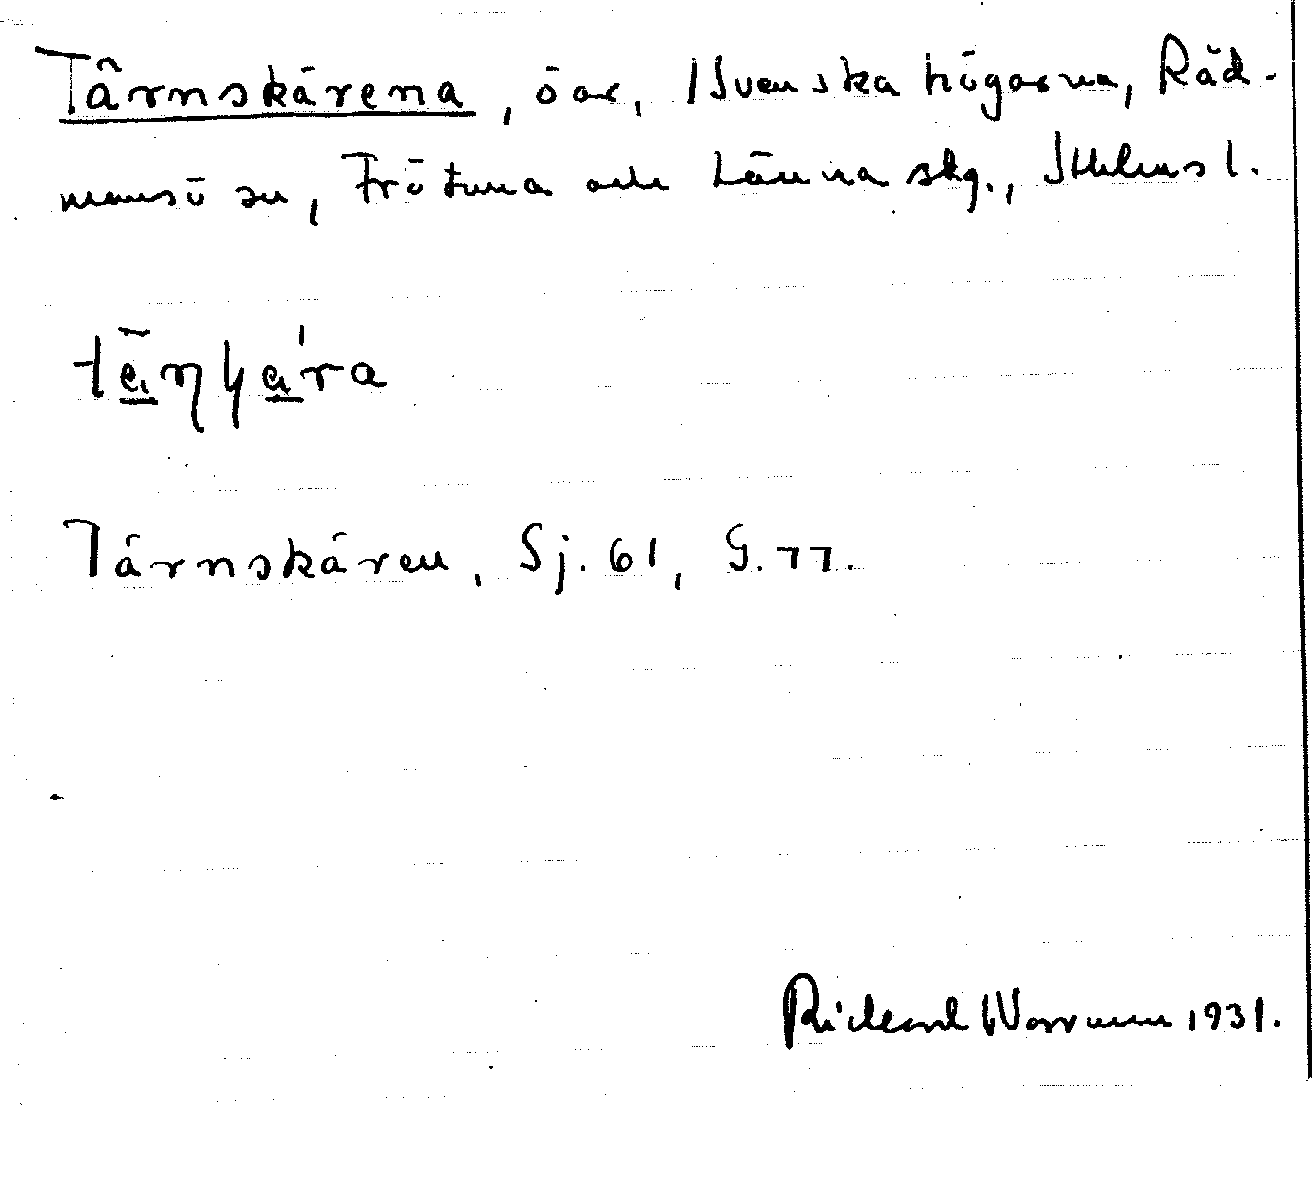 Tärnskärena, öar, Svenska högarna, Råd-
mansö sn, Frötuna och Länna skg., Sthlms l.
Tärnskären, Sj. 61, G. 77.
Rickard Wormun 1931.